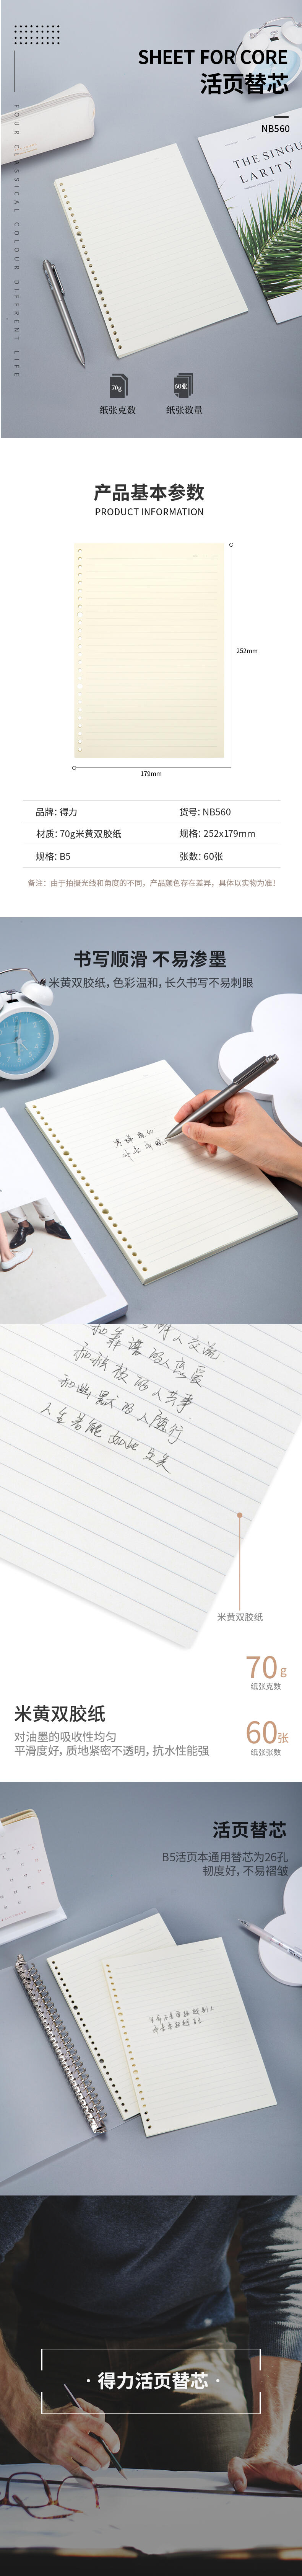 SHEET FOR CORE
活页替芯
NB560
FOUR CLASSICAL COLOUR DIFFRENT LIFE
THE SINGU
LARITY
70g
60张
纸张克数
纸张数量
产品基本参数
PRODUCT INFORMATION
252mm
179mm
品牌：得力
货号：NB560
材质：70g米黄双胶纸
规格：252x179mm
规格：B5
张数：60张
备注：由于拍摄光线和角度的不同，产品颜色存在差异，具体以实物为准！
书写顺滑 不易渗墨
米黄双胶纸，色彩温和，长久书写不易刺眼
人生若能如此 足矣
米黄双胶纸
70g
纸张克数
米黄双胶纸
60张
对油墨的吸收性均匀
纸张张数
平滑度好，质地紧密不透明，抗水性能强
活页替芯
B5活页本通用替芯为26孔
韧度好，不易褶皱
· 得力活页替芯 ·